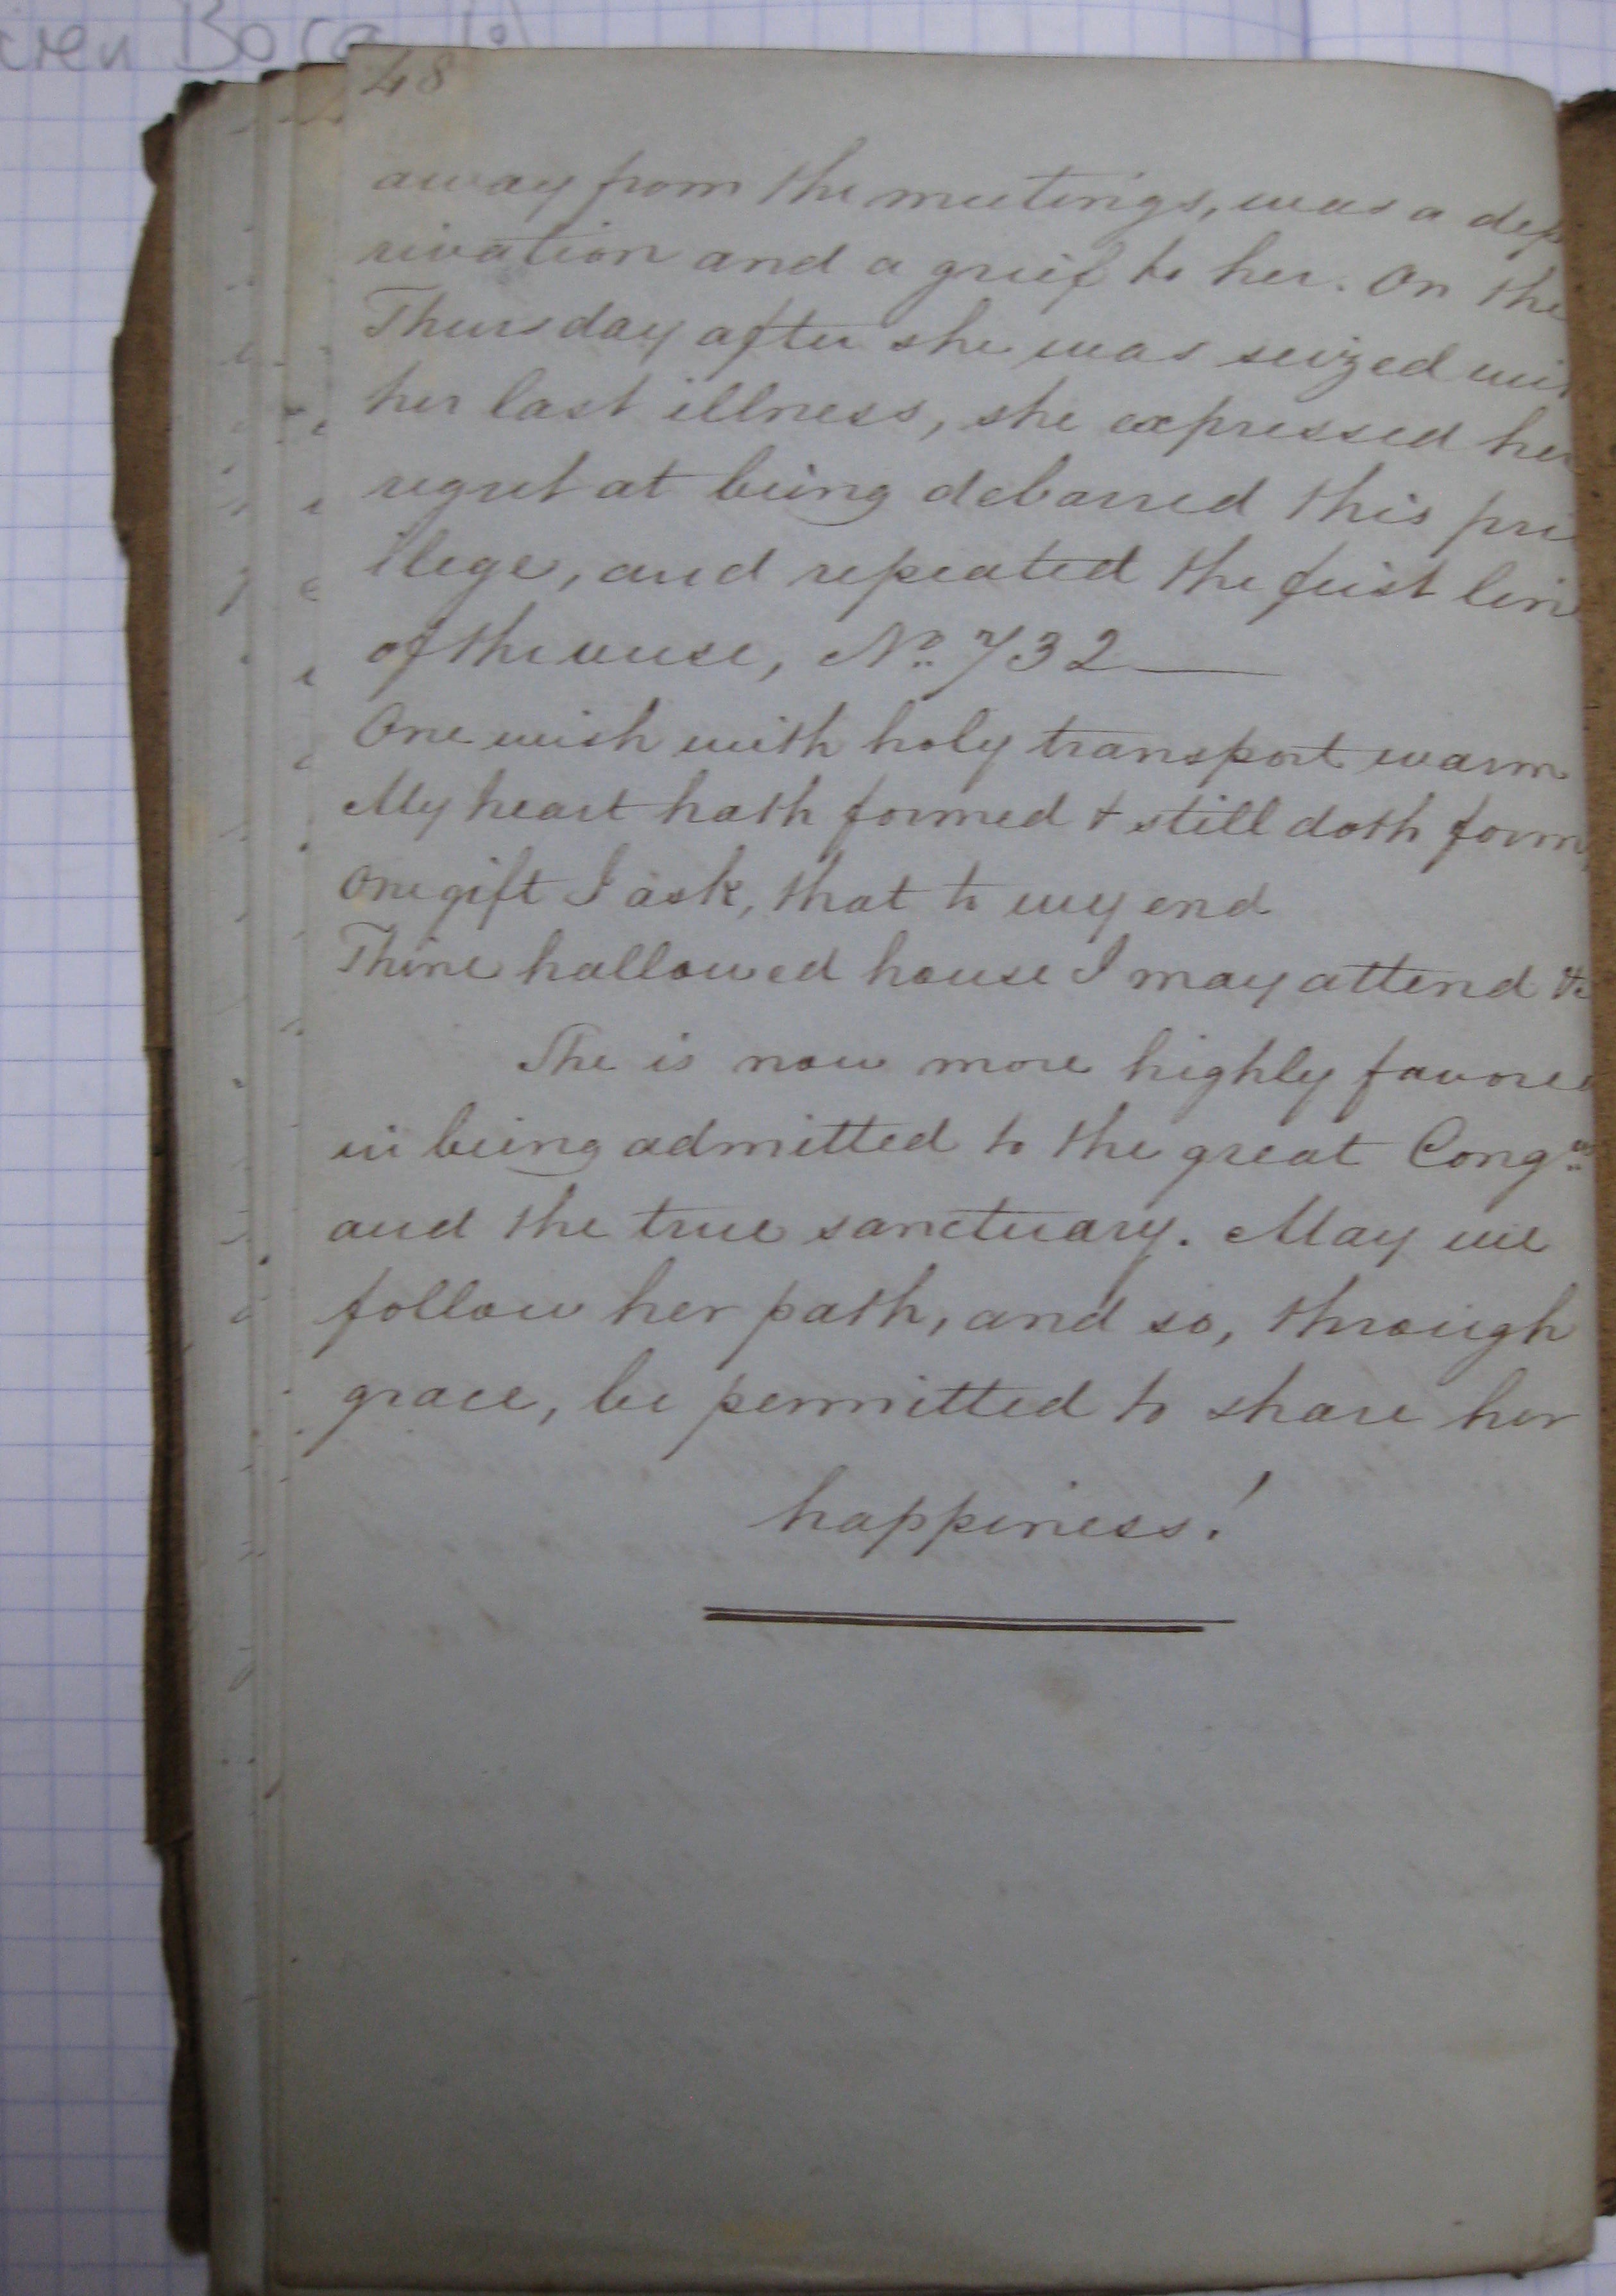 48
away from the meetings, was a dep
rivation and a grief to her. On the
Thursday after she was seized wit
her last illness, she expressed her
regret at being debarred this pri
ilege, and repeated the first line
of the verse, No. 732
One wish with holy transport warm
My heart hath formed & still doth form,
One gift I ask, that to my end
Thine hallowed house I may attend &c
She is now more highly favored
in being admitted to the great Congn
and the true sanctuary. May we
follow her path, and so, through
grace, be permitted to share her
happiness!